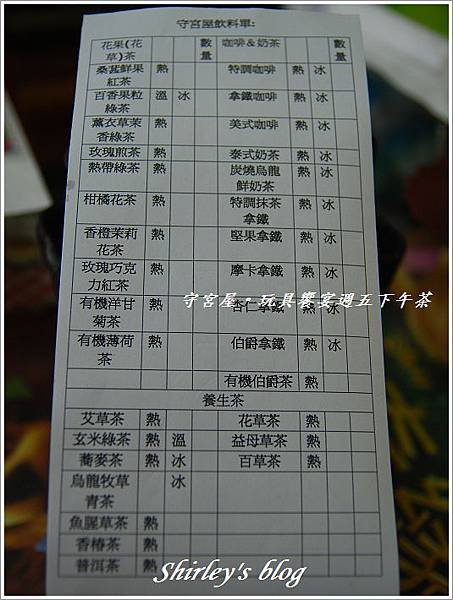 守宮屋飲料單:
花果(花草)茶 數量 咖啡&奶茶 數量
桑葚鮮果紅茶 熱 特調咖啡 熱 冰
百香果粒綠茶 溫 冰 拿鐵咖啡 熱 冰
薰衣草茉香綠茶 熱 美式咖啡 熱 冰
玫瑰煎茶 熱 泰式奶茶 熱 冰
熱帶綠茶 熱 炭燒烏龍鮮奶茶 熱 冰
柑橘花茶 熱 特調抹茶拿鐵 熱 冰
香橙茉莉花茶 熱 堅果拿鐵 熱 冰
玫瑰巧克力紅茶 熱 摩卡拿鐵 熱 冰
守宮屋‧玩具饗宴週五下午茶
有機洋甘菊茶 熱 杏仁拿鐵 熱 冰
有機薄荷茶 熱 伯爵拿鐵 熱 冰
有機伯爵茶 熱
養生茶
艾草茶 熱 花草茶 熱
玄米綠茶 熱 溫 益母草茶 熱
蕎麥茶 熱 冰 百草茶 熱
烏龍牧草青茶 冰
魚腥草茶 熱
香椿茶 熱
普洱茶 熱
Shirley's blog